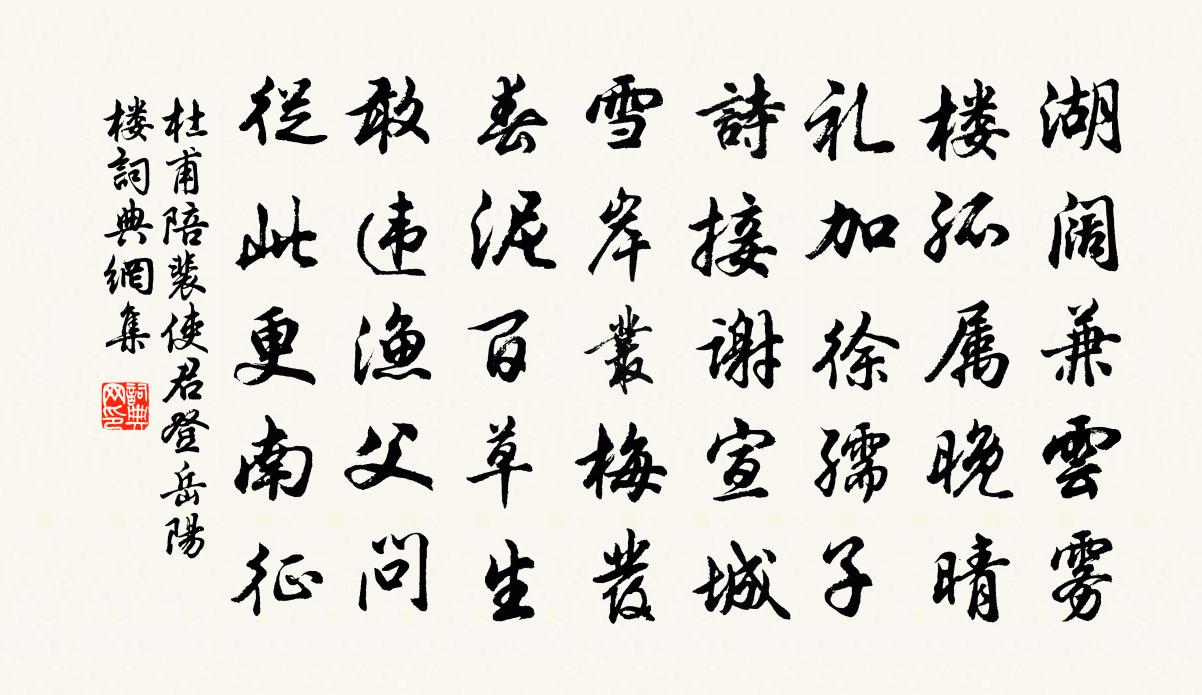 湖阔兼雲雾
楼孤属晚晴
礼加徐孺子
詩接谢宣城
雪岸叢梅發
春泥百草生
敢违渔父問
從此更南征
杜甫陪裴使君登岳陽
楼詞典網集
詞典
网印